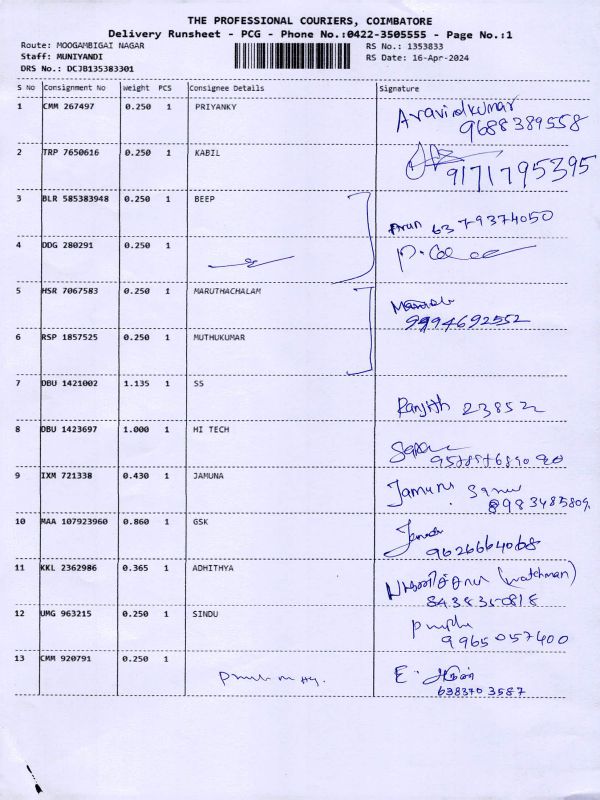 THE PROFESSIONAL COURIERS, COIMBATORE
Delivery Runsheet - PCG - Phone No.:0422-3505555 - Page No.:1
Route: MOOGAMBIGAI NAGAR RS No.: 1353833
Staff: MUNIYANDI RS Date: 16-Apr-2024
DRS No.: DCJB135383301
S No Consignment No Weight PCS Consignee Details Signature
1 CMM 267497 0.250 1 PRIYANKY Aravindkumar
9688389558
2 TRP 7650616 0.250 1 KABIL
9171795395
3 BLR 585383948 0.250 1 BEEP
Arun 6379374050
4 DDG 280291 0.250 1
5 HSR 7067583 0.250 1 MARUTHACHALAM
9994692552
6 RSP 1857525 0.250 1 MUTHUKUMAR
7 DBU 1421002 1.135 1 SS
Ranjith 23852
8 DBU 1423697 1.000 1 HI TECH
9 IXM 721338 0.430 1 JAMUNA Jamuna
8983485809
10 MAA 107923960 0.860 1 GSK
9626664068
11 KKL 2362986 0.365 1 ADHITHYA
(watchman)
8438350818
12 UMG 963215 0.250 1 SINDU
9965057400
13 CMM 920791 0.250 1 E.
638370 3587